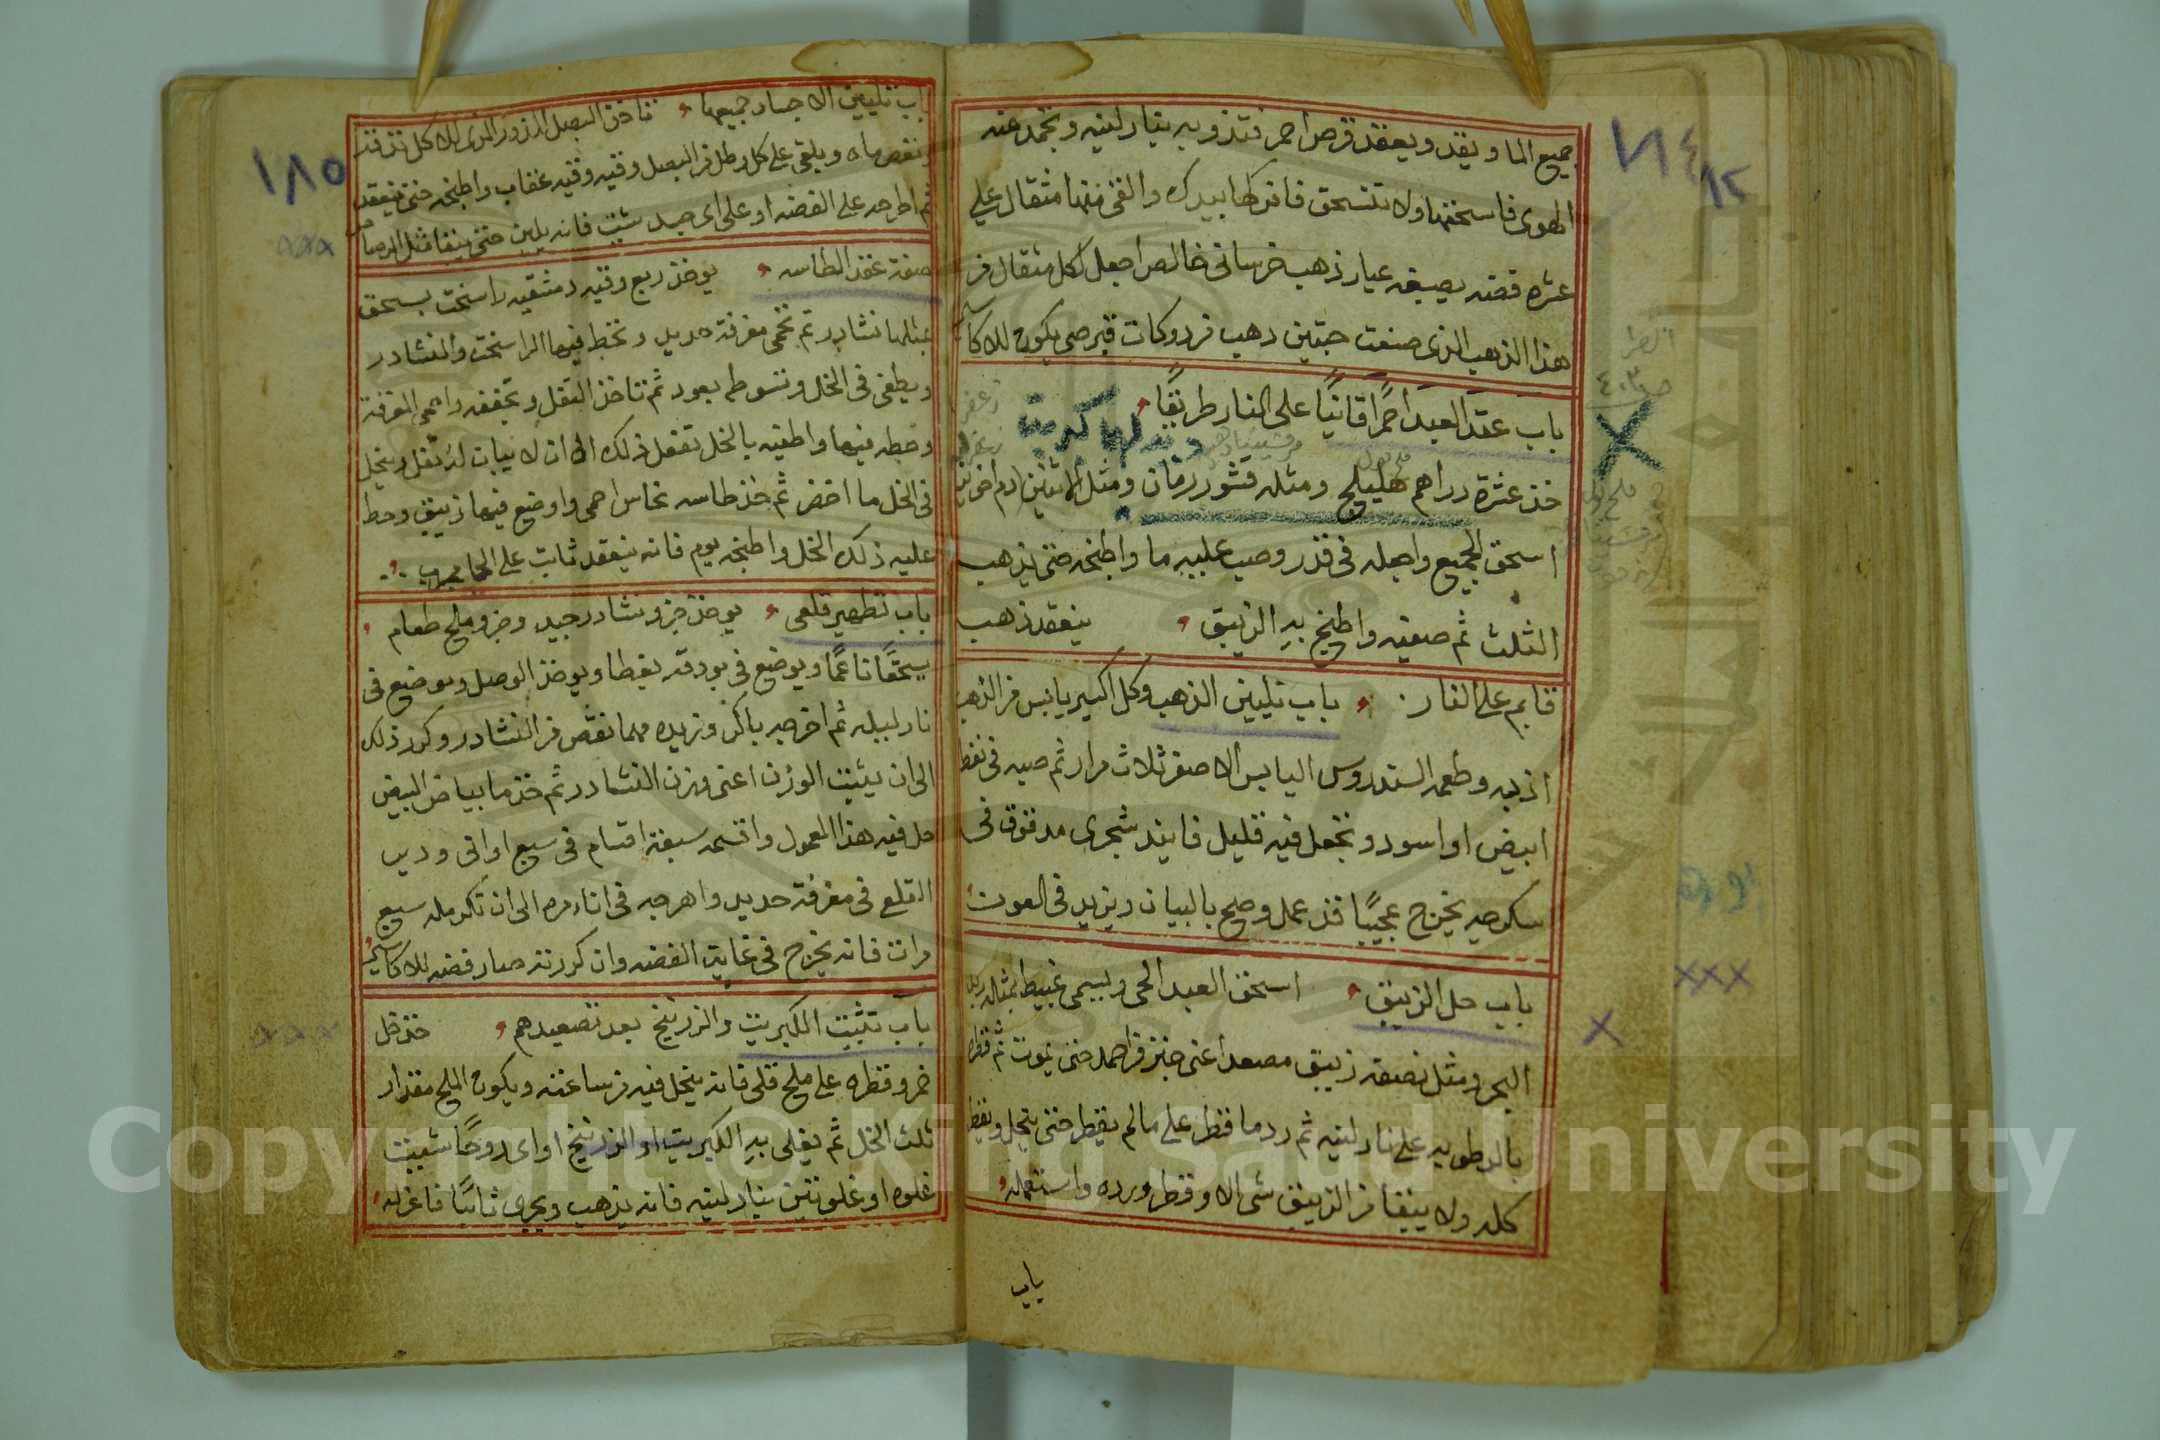 جميع الما وبقد ويعقد قرص احمر فتذوبه بنار لينه وتجمد عنه
الهوى فاسحقها ولا تنسحق فافركها بيدك والقى منها مثقال على
عشره فضه بصبغه عيار ذهب خرسانى خالص اجعل لكل مثقال من
هذا الذهب الذى صنعت حبتين دهب فردوكات قبرصى يكون للاكا
باب عقد العبد احمرًا قانيًا على النار طريقًا
خذ عشرة دراهم هليلج ومثله قشور رمان ومثل الاثنين دم اخوين
اسحق الجميع واجعله فى قدر وصب عليه ما واطبخه حتى يذهب
الثلث ثم صفيه واطبخ به الزيبق ينعقد ذهب
قايم على النار باب تليين الذهب وكل اكسير يابس من الذهب
اذيبه وطعمه السندروس اليابس الاصفر ثلاث مرار ثم صبه فى نفط
ابيض او اسود وتجعل فيه قليل فايند شجرى مدقوق فى
سكرجه يخرج عجيبًا قد عمل وصح بالبيان ويزيد فى اللون
باب حل الزيبق اسحق العبد الحى ويسمى غبيط بمثاله زبد
البحر ومثل نصفه زيبق مصعد اعنى جزء من احمد حتى يموت ثم قطره
بالرطوبه على نار لينه ثم رد ما قطر على مالم يقطر حتى ينحل ويقطر
كله ولا يبقا من الزيبق شى الا وقطر ورده واستعمله
باب
١٨٥
باب تليين الاجساد جميعها تاخذ البصل المذور الذى للاكل تدقه
وتعصر ماه ويلقى على كل رطل من البصل وقيه وقيه عقاب واطبخه حتى ينعقد
ثم اطرحه على الفضه او على اى جسد شئت فانه يلين حتى يبقا مثل الرصاص
صفة عقد الطاسه يوخذ ربع وقيه دمشقيه راسخت يسحق
بمثلها نشادر ثم تحمى مغرفة حديد وتحط فيها الراسخت والنشادر
ويطفى فى الخل وتسوطه بعود ثم تاخذ الثقل وتجففه واحمى المغرفة
وحطه فيها واطفيه بالخل تفعل ذلك الى ان لا يبات له ثقل وينحل
فى الخل ما اخضر ثم خذ طاسه نحاس احمى واوضع فيها زيبق وحط
عليه ذلك الخل واطبخه يوم فانه ينعقد ثابت على الحا مجرب
باب تطهير قلعى يوخذ جزو نشادر جيد وجزو ملح طعام
يسحقا ناعمًا ويوضع فى بودقه بغطا ويوخذ الوصل ويوضع فى
نار ليله ثم اخرجه باكر وزيده مهما نقص من النشادر وكرر ذلك
الى ان يثبت الوزن اعنى وزن النشادر ثم خذ ما بياض البيض
حل فيه هذا المعمول واقسمه سبعة اقسام فى سبع اوانى وديب
القلع فى مغرفة حديد واهرجه فى اناء مره الى ان تكمله سبع
مرات فانه يخرج فى غاية الفضه وان كررته صار فضه للاكاسير
باب تثبيت الكبريت والزرنيخ بعد تصعيدهم خذ خل
خمر وقطره على ملح قلى فانه ينحل فيه من ساعته ويكون الملح مقدار
ثلث الخل ثم يغلى به الكبريت او الزرنيخ او اى روحًا شيت
غلوه او غلوتين بنار لينه فانه يذهب ويجرى ثابتًا فاعزله
Copyright © King Saud University